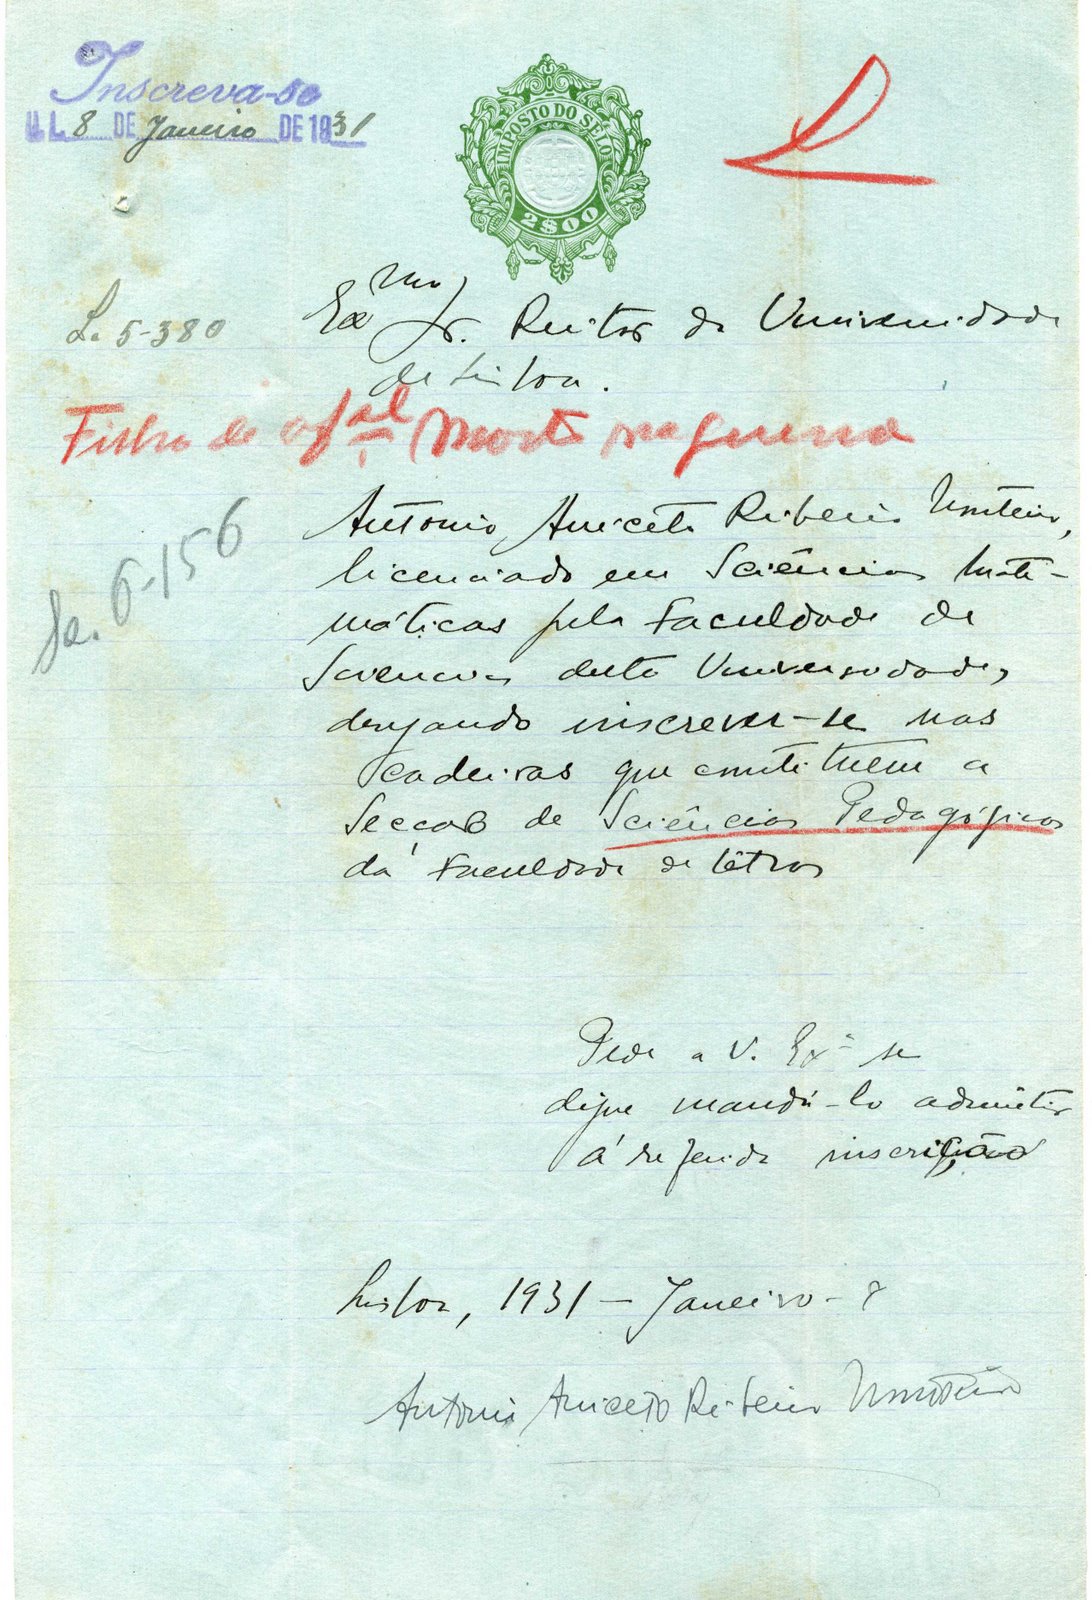 Inscreva-se
U. L. 8 DE Janeiro DE 1931
IMPOSTO DO SELO
2$00
L. 5-380
Exmo Sr. Reitor da Universidade
de Lisboa.
Filho de ofal morto na guerra
6-156
António Aniceto Ribeiro Monteiro,
licenciado em Sciências Mate-
máticas pela Faculdade de
Sciencias desta Universidade,
desejando inscrever-se nas
cadeiras que constituem a
Secção de Sciências Pedagógicas
da Faculdade de Letras
Pede a V. Exª se
digne mandá-lo admitir
á referida inscrição
Lisboa, 1931 - Janeiro - 8
António Aniceto Ribeiro Monteiro